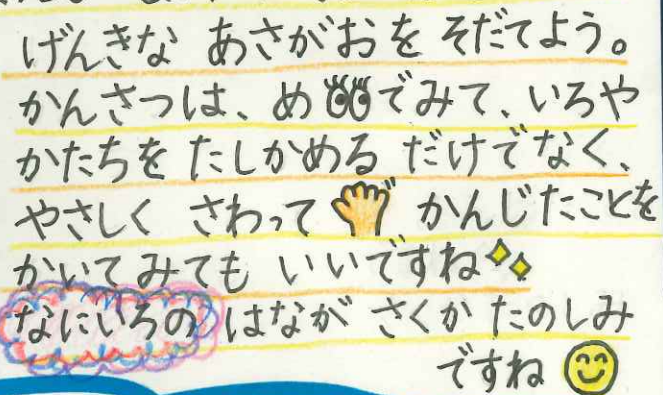 げんきな あさがおを そだてよう。
かんさつは、め👀でみて、いろや
かたちを たしかめる だけでなく、
やさしく さわって 🖐 かんじたことを
かいてみても いいですね✨
なにいろの はなが さくか たのしみ
ですね 😊